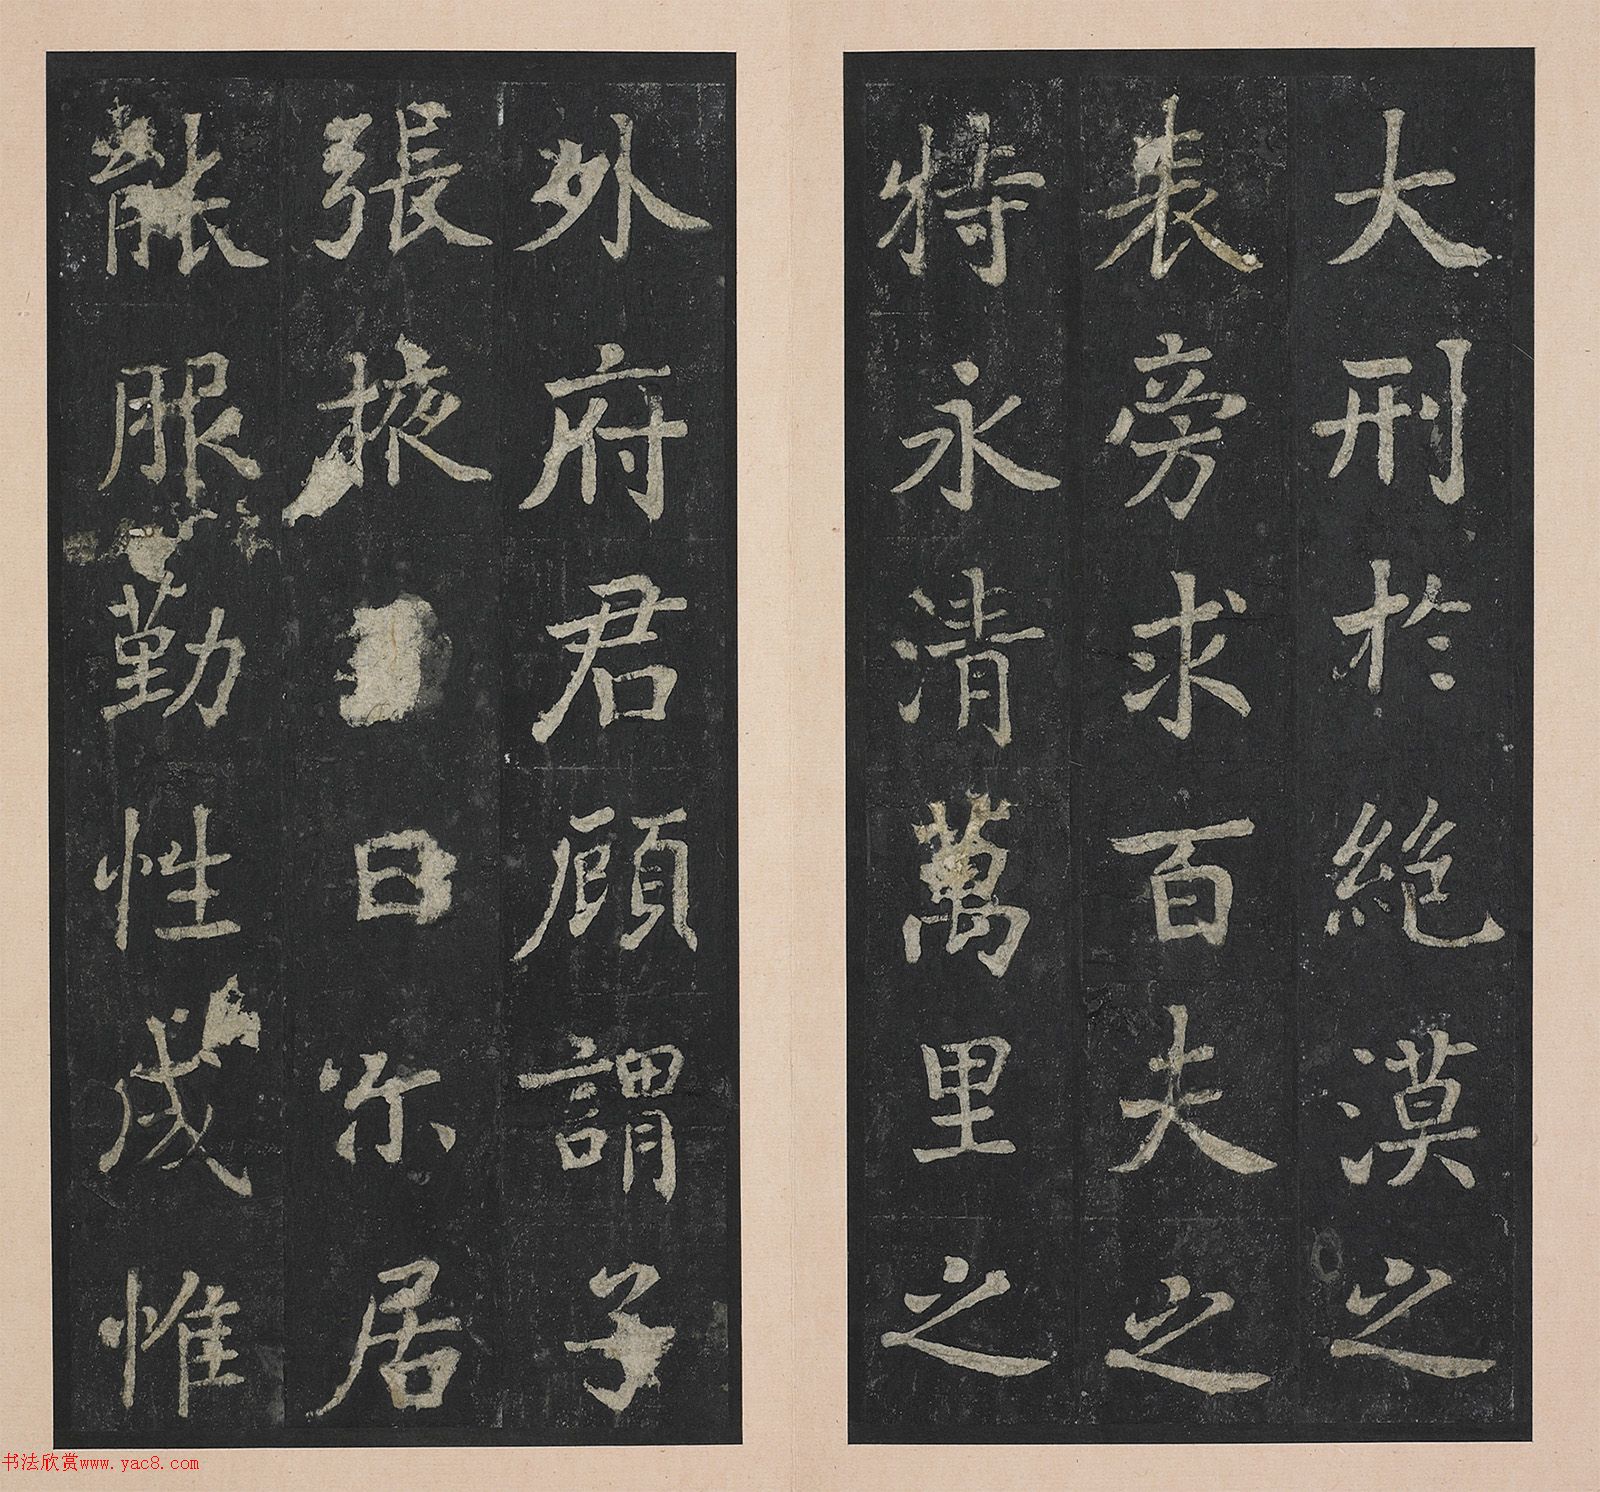 大刑於絕漠之
表旁求百夫之
特永清萬里之
外府君顧謂子
張掖曰尔居
能服勤性成惟
书法欣赏www.yac8.com